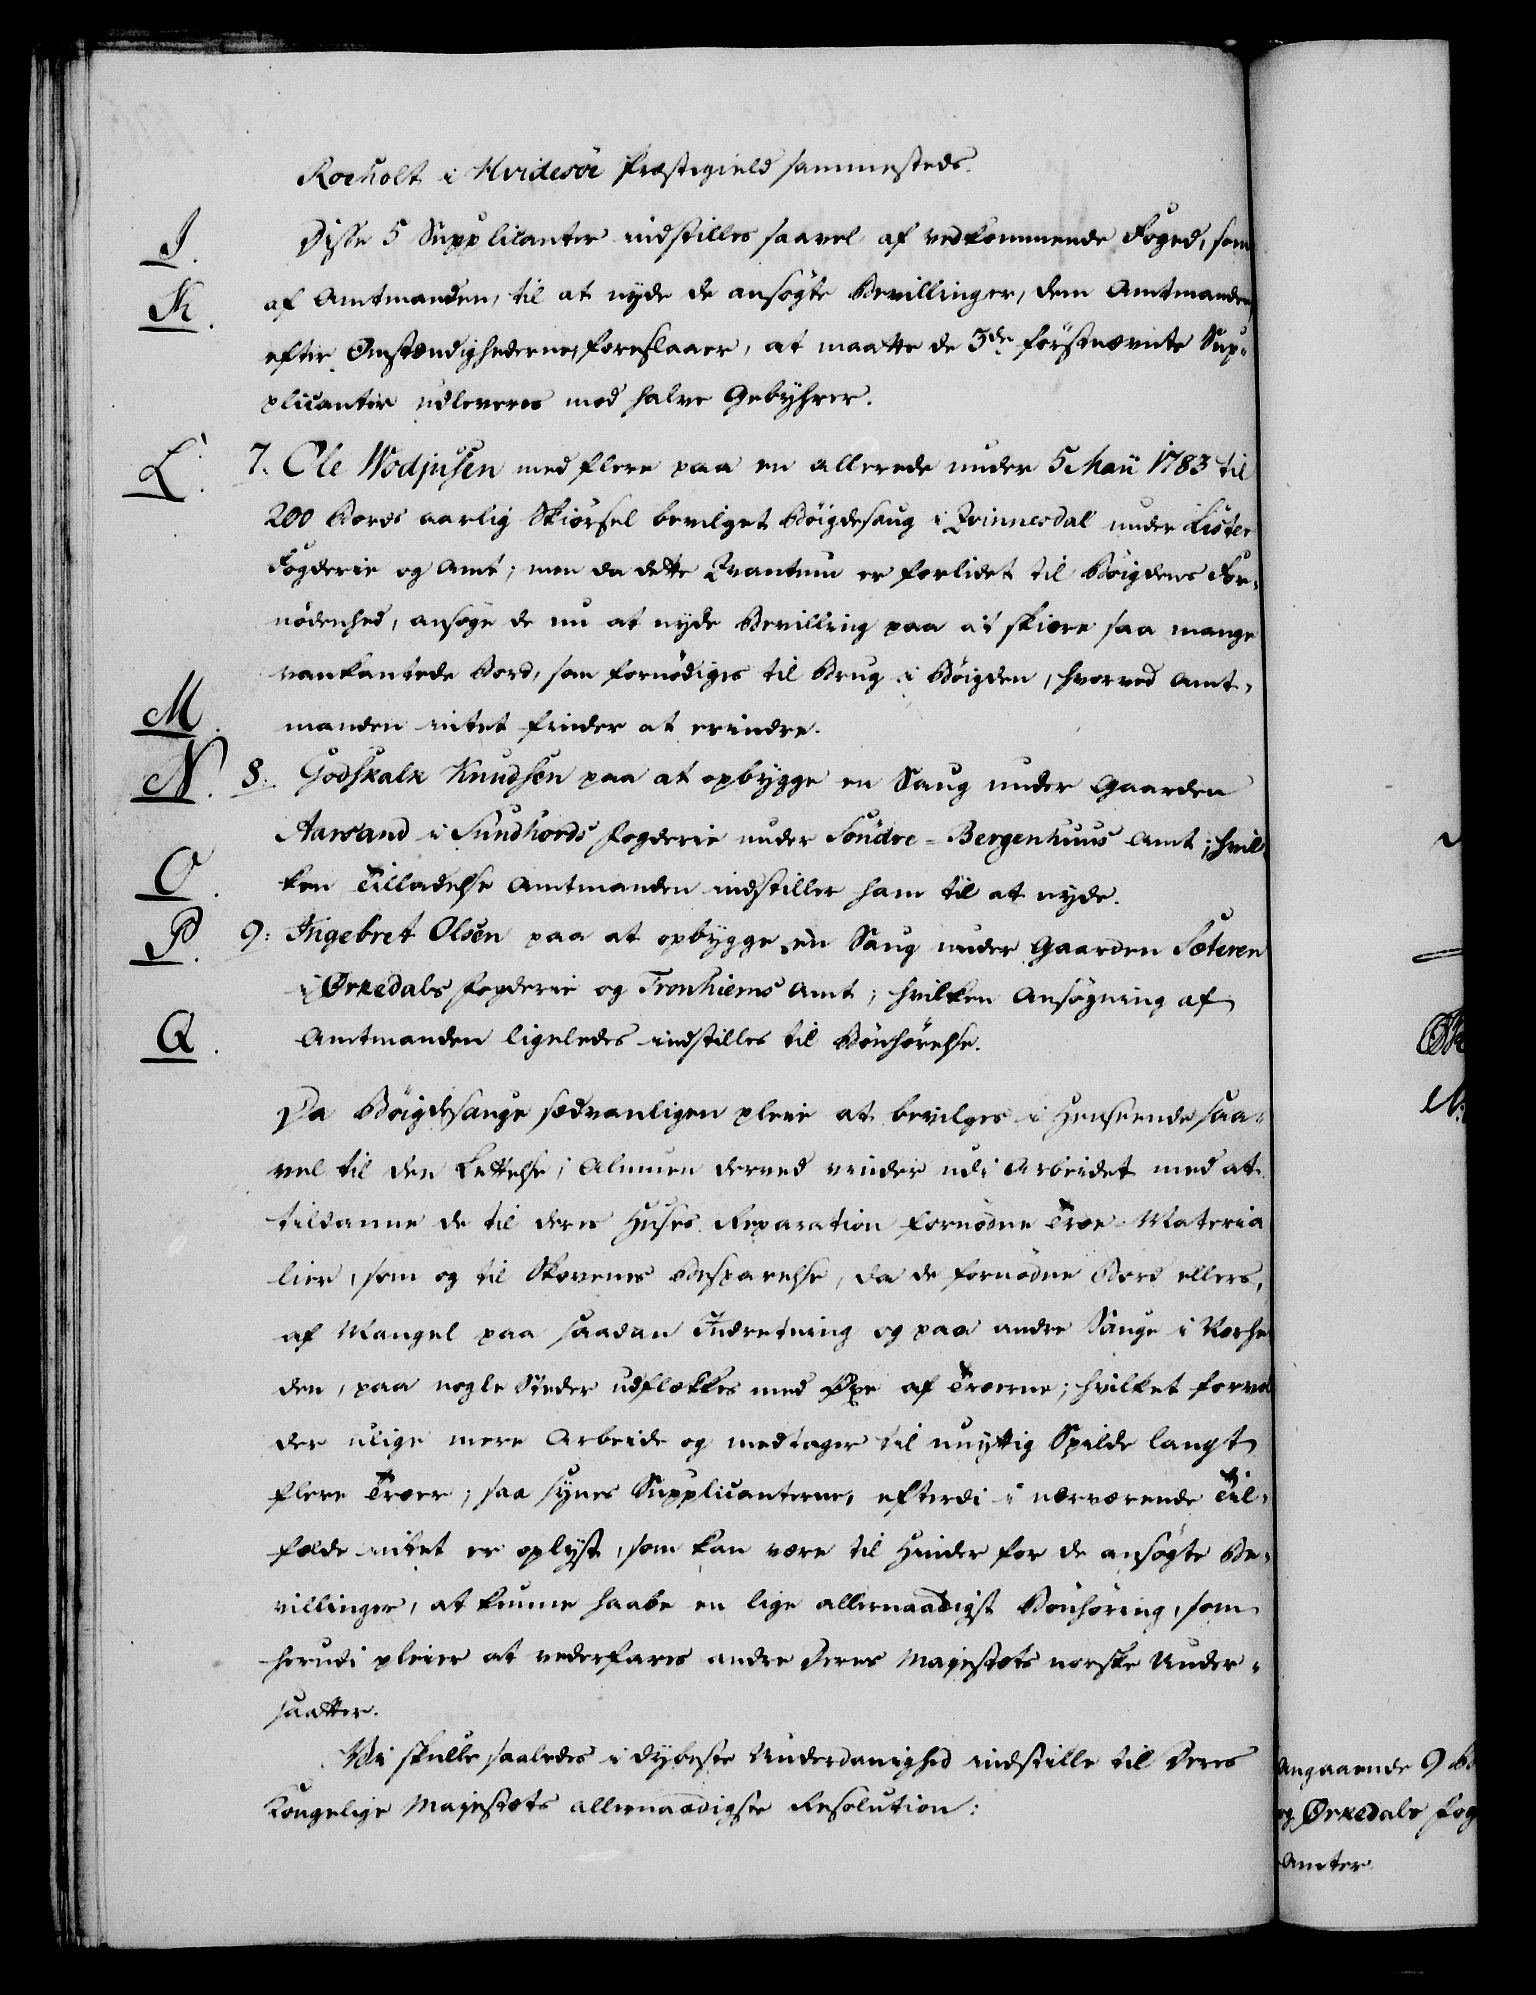 Roeholt i Hvidesöe Præstegield sammesteds.
I.
Disse 5 Supplicanter indstilles saavel af vedkommende Foged, som
K.
af Amtmanden, til at nyde de ansøgte Bevillinger, dem Amtmanden
efter Omstændighederne foreslaaer, at maatte de 3de förstnævnte Sup-
plicanter udleveres mod halve Gebyhrer.
L.
7. Ole Wodjusen med flere paa en allerede under 5 Maii 1783 til
200 Bords aarlig Skiörsel bevilget Böigdesaug i Qvinnesdal under Lister
Fogderie og Amt; men da dette Qvantum er forlidet til Böigdens For-
nödenhed, ansöge de nu at nyde Bevilling paa at skiære saa mange
vankantede Bord, som fornödiges til Brug i Böigden, hvorved Amt-
M.
manden intet finder at erindre.
N.
8. Godskalk Knudsen paa at opbygge en Saug under Gaarden
Aarsand i Sundhords Fogderie under Söndre-Bergenhuus Amt; hvil-
O.
ken Tilladelse Amtmanden indstiller ham til at nyde.
P.
9. Ingebret Olsen paa at opbygge en Saug under Gaarden Sæteren
i Ørkedals Fogderie og Tronhiems Amt; hvilken Ansøgning af
Q.
Amtmanden ligeledes indstilles til Bönhörelse.
Da Böigdesauge sædvanligen pleie at bevilges i Henseende saa-
vel til den Lettelse, Almuen derved vinder udi Arbeidet med at
tildanne de til deres Huses Reparation fornödne Træ-Materia
lier, som og til Skovenes Besparelse, da de fornödne Bord ellers,
af Mangel paa saadan Indretning og paa andre Sauge i Nærhe
den, paa nogle Steder udflækkes med Øxe af Træerne; hvilket forvol
der ulige mere Arbeide og medtager til unyttig Spilde langt
flere Træer; saa synes Supplicanterne, efterdi i nærværende Til-
fælde intet er oplyst, som kan være til Hinder for de ansøgte Be-
villinger, at kunne haabe en lige allernaadigst Bönhöring, som
herudi pleier at vederfares andre Deres Majestæts norske Under-
saatter.
Vi skulle saaledes i dybeste Underdanighed indstille til Deres
Kongelige Majestæts allernaadigste Resolution:
angaaende 9 Bö
og Ørkedals Fog
Amter.